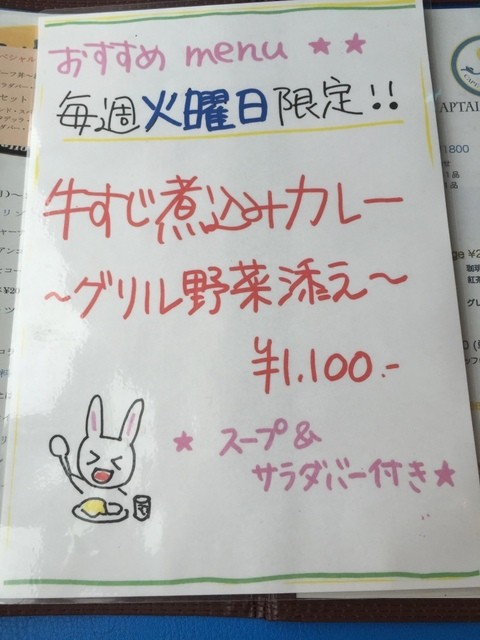 おすすめ menu ★ ★
毎週火曜日限定!!
牛すじ煮込みカレー
~グリル野菜添え~
¥1,100.-
★ スープ&
サラダバー付き★